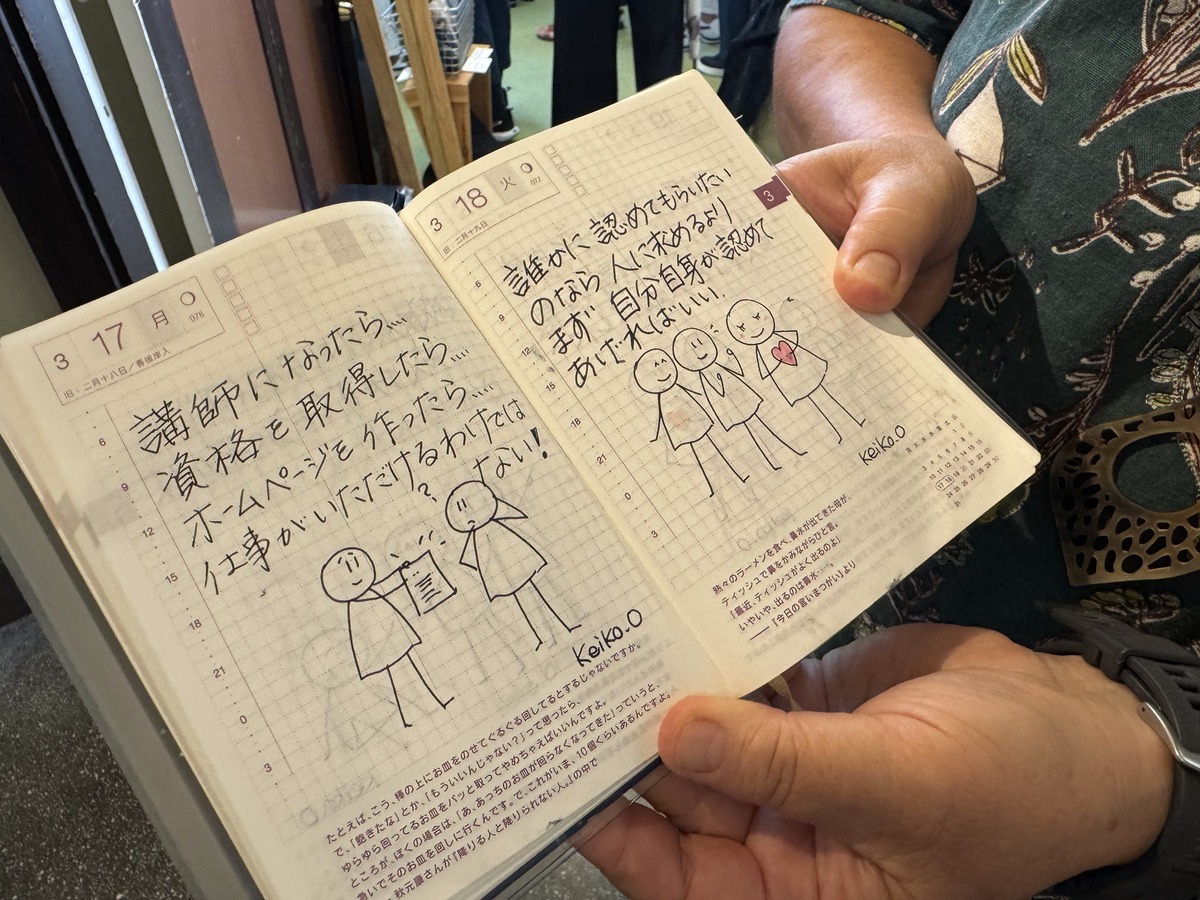 3 17 月 076
旧:二月十八日/春彼岸入
講師になったら....
資格を取得したら....
ホームページを作ったら....
仕事がいただけるわけでは
ない!
?
6
9
12
15
18
21
0
3
Keiko.O
たとえば、こう、棒の上にお皿をのせてぐるぐる回してるとするじゃないですか。
で、「飽きたな」とか、「もういいんじゃない?」って思ったら、
ゆらゆら回ってるお皿をパッと取ってやめちゃえばいいんですよ。
ところが、ぼくの場合は、「あ、あっちのお皿が回らなくなってきた」っていうと、
急いでそのお皿を回しに行くんです。で、これがいま、10個くらいあるんですよ。
秋元康さんが『降りる人と降りられない人。』の中で
3 18 火 077
旧:二月十九日
3
誰かに 認めてもらいたい
のなら 人に求めるより
まず 自分自身が認めて
あげればいい!
6
9
12
15
18
21
0
3
Keiko.O
熱々のラーメンを食べ、鼻水が出てきた母が、
ティッシュで鼻をかみながらひと言。
「最近、ティッシュがよく出るのよ」
いやいや、出るのは鼻水……。
──『今日の言いまつがい』より